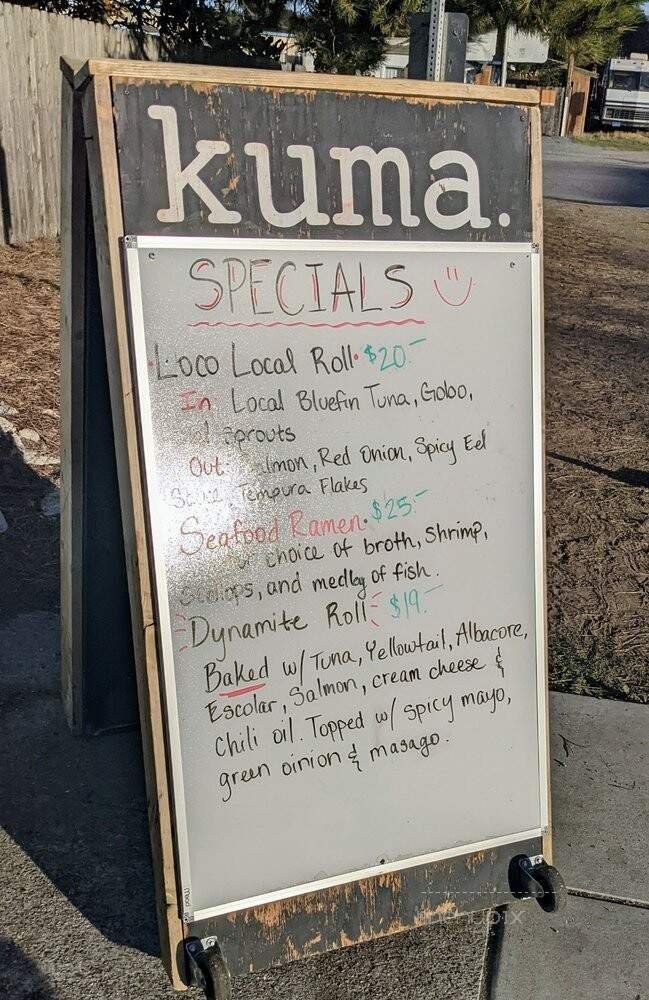 kuma.
SPECIALS
Loco Local Roll $20.-
In Local Bluefin Tuna, Gobo,
sprouts
Out: Salmon, Red Onion, Spicy Eel
Tempura Flakes
Seafood Ramen $25.-
choice of broth, Shrimp,
Scallops, and medley of fish.
Dynamite Roll $19.-
Baked w/ Tuna, Yellowtail, Albacore,
Escolar, Salmon, cream cheese &
Chili oil. Topped w/ spicy mayo,
green oinion & masago.